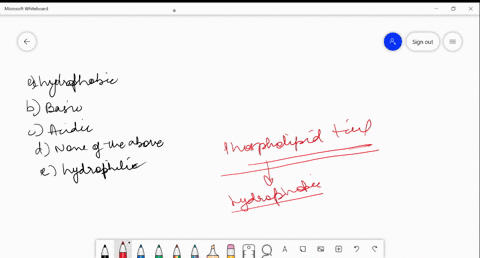 Microsoft Whiteboard
Sign out
a) hydrophobic
b) Basic
c) Acidic
d) None of the above
e) hydrophilic
Phospholipid tail
hydrophobic